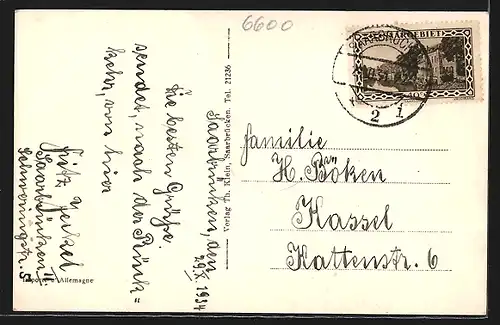 6600
SAARGEBIET
SAARBRÜCKEN
2 1
Saarbrücken, den
29.X.1934
Die besten Grüße
sendet, nach der Rück=
kehr, von hier
Fritz
Saarbrücken II.
Verlag Th. Klein, Saarbrücken. Tel. 21236
Familie
H. Böken
Kassel
Kattenstr. 6
Importé d'Allemagne